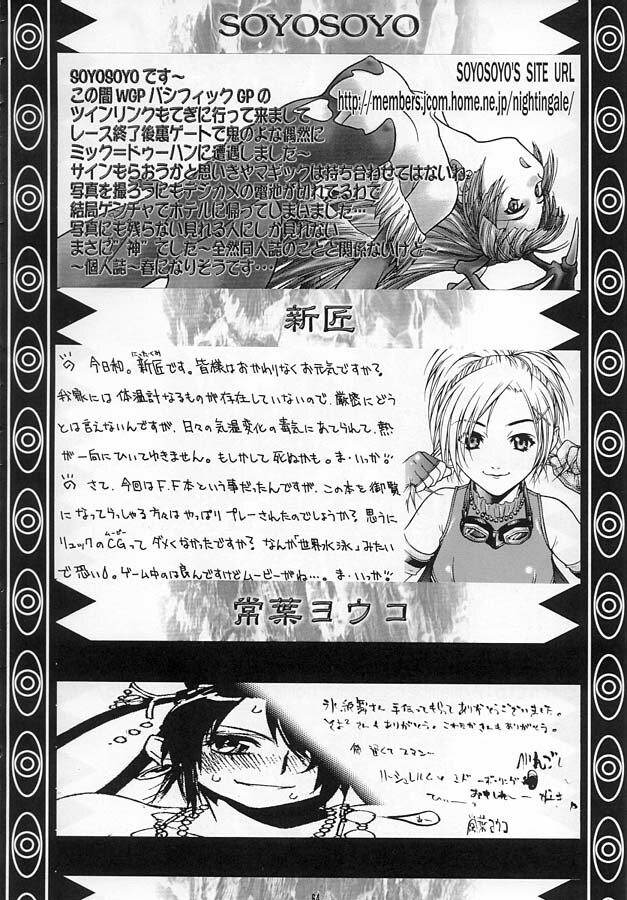 SOYOSOYO
SOYOSOYOです〜
この間WGPパシフィックGPの
ツインリンクもてぎに行って来まして
レース終了後裏ゲートで鬼のよな偶然に
ミック=ドゥーハンに遭遇しました〜
サインもらおうかと思いきやマギックは持ち合わせてはないわ
写真を撮ろうにもデジカメの電池が切れてるわで
結局ゲンチャでホテルに帰ってしまいました…
写真にも残らない見れる人にしか見れない
まさに"神"でした〜全然同人誌のことと関係ないけど
〜個人誌〜春になりそうです…
SOYOSOYO'S SITE URL
http://members.jcom.home.ne.jp/nightingale/
新匠
今日和。新匠です。皆様はおかわりなくお元気ですか?
にったくみ
我家には体温計なるものが存在していないので、厳密にどう
とは言えないんですが、日々の気温変化の毒気にあてられて、熱
が一向にひいてゆきません。もしかして死ぬかも。ま・いっか
さて、今回はF.F本という事だったんですが、この本を御覧
になってらっしゃる方々はやっぱりプレーされたのでしょうか?思うに
リュックのCGってダメくなかったですか?なんか「世界水泳」みたい
ムービー
で恐い。ゲーム中のは良んですけどムービーがね…。ま・いっか
常葉ヨウコ
さん 手伝ってもらってありがとうございました。
さんもありがとう。これたかさんもありがとう。
遅くてスマン…
64